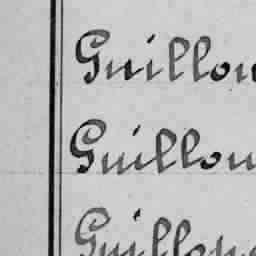 Guillou
Guillou
Guillou